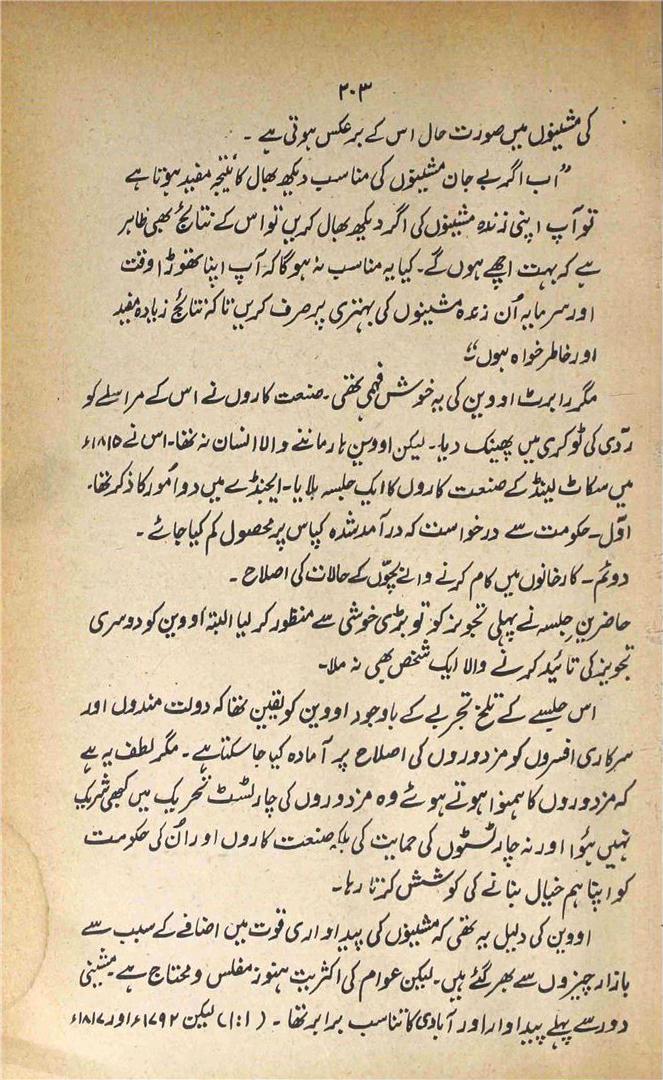 ۲۰۳
کی مشینوں میں صورت حال اس کے برعکس ہوتی ہے ۔
”اب اگر بے جان مشینوں کی مناسب دیکھ بھال کا نتیجہ مفید ہوتا ہے
تو آپ اپنی زندہ مشینوں کی اگر دیکھ بھال کریں تو اس کے نتائج بھی ظاہر
ہے کہ بہت اچھے ہوں گے۔ کیا یہ مناسب نہ ہوگا کہ آپ اپنا تھوڑا وقت
اور سرمایہ اُن زندہ مشینوں کی بہتری پر صرف کریں تاکہ نتائج زیادہ مفید
اور خاطر خواہ ہوں“
مگر رابرٹ اووین کی یہ خوش فہمی تھی۔ صنعت کاروں نے اس کے مراسلے کو
ردّی کی ٹوکری میں پھینک دیا۔ لیکن اووین ہار ماننے والا انسان نہ تھا۔ اس نے ۱۸۱۵ء
میں سکاٹ لینڈ کے صنعت کاروں کا ایک جلسہ بلایا۔ ایجنڈے میں دو اُمور کا ذکر تھا۔
اوّل۔ حکومت سے درخواست کہ درآمد شدہ کپاس پر محصول کم کیا جائے ۔
دوئم۔ کارخانوں میں کام کرنے والے بچّوں کے حالات کی اصلاح ۔
حاضرینِ جلسہ نے پہلی تجویز کو تو بڑی خوشی سے منظور کر لیا البتہ اووین کو دوسری
تجویز کی تائید کرنے والا ایک شخص بھی نہ ملا۔
اس جلسے کے تلخ تجربے کے باوجود اووین کو یقین تھا کہ دولت مندوں اور
سرکاری افسروں کو مزدوروں کی اصلاح پر آمادہ کیا جا سکتا ہے۔ مگر لطف یہ ہے
کہ مزدوروں کا ہمنوا ہوتے ہوئے وہ مزدوروں کی چارٹسٹ تحریک میں کبھی شریک
نہیں ہؤا اور نہ چارٹسٹوں کی حمایت کی بلکہ صنعت کاروں اور اُن کی حکومت
کو اپنا ہم خیال بنانے کی کوشش کرتا رہا۔
اووین کی دلیل یہ تھی کہ مشینوں کی پیداواری قوت میں اضافے کے سبب سے
بازار چیزوں سے بھر گئے ہیں۔ لیکن عوام کی اکثریت ہنوز مفلس و محتاج ہے۔ مشینی
دور سے پہلے پیداوار اور آبادی کا تناسب برابر تھا ۔ (۱:۱) لیکن ۱۷۹۲ء اور ۱۸۱۷ء